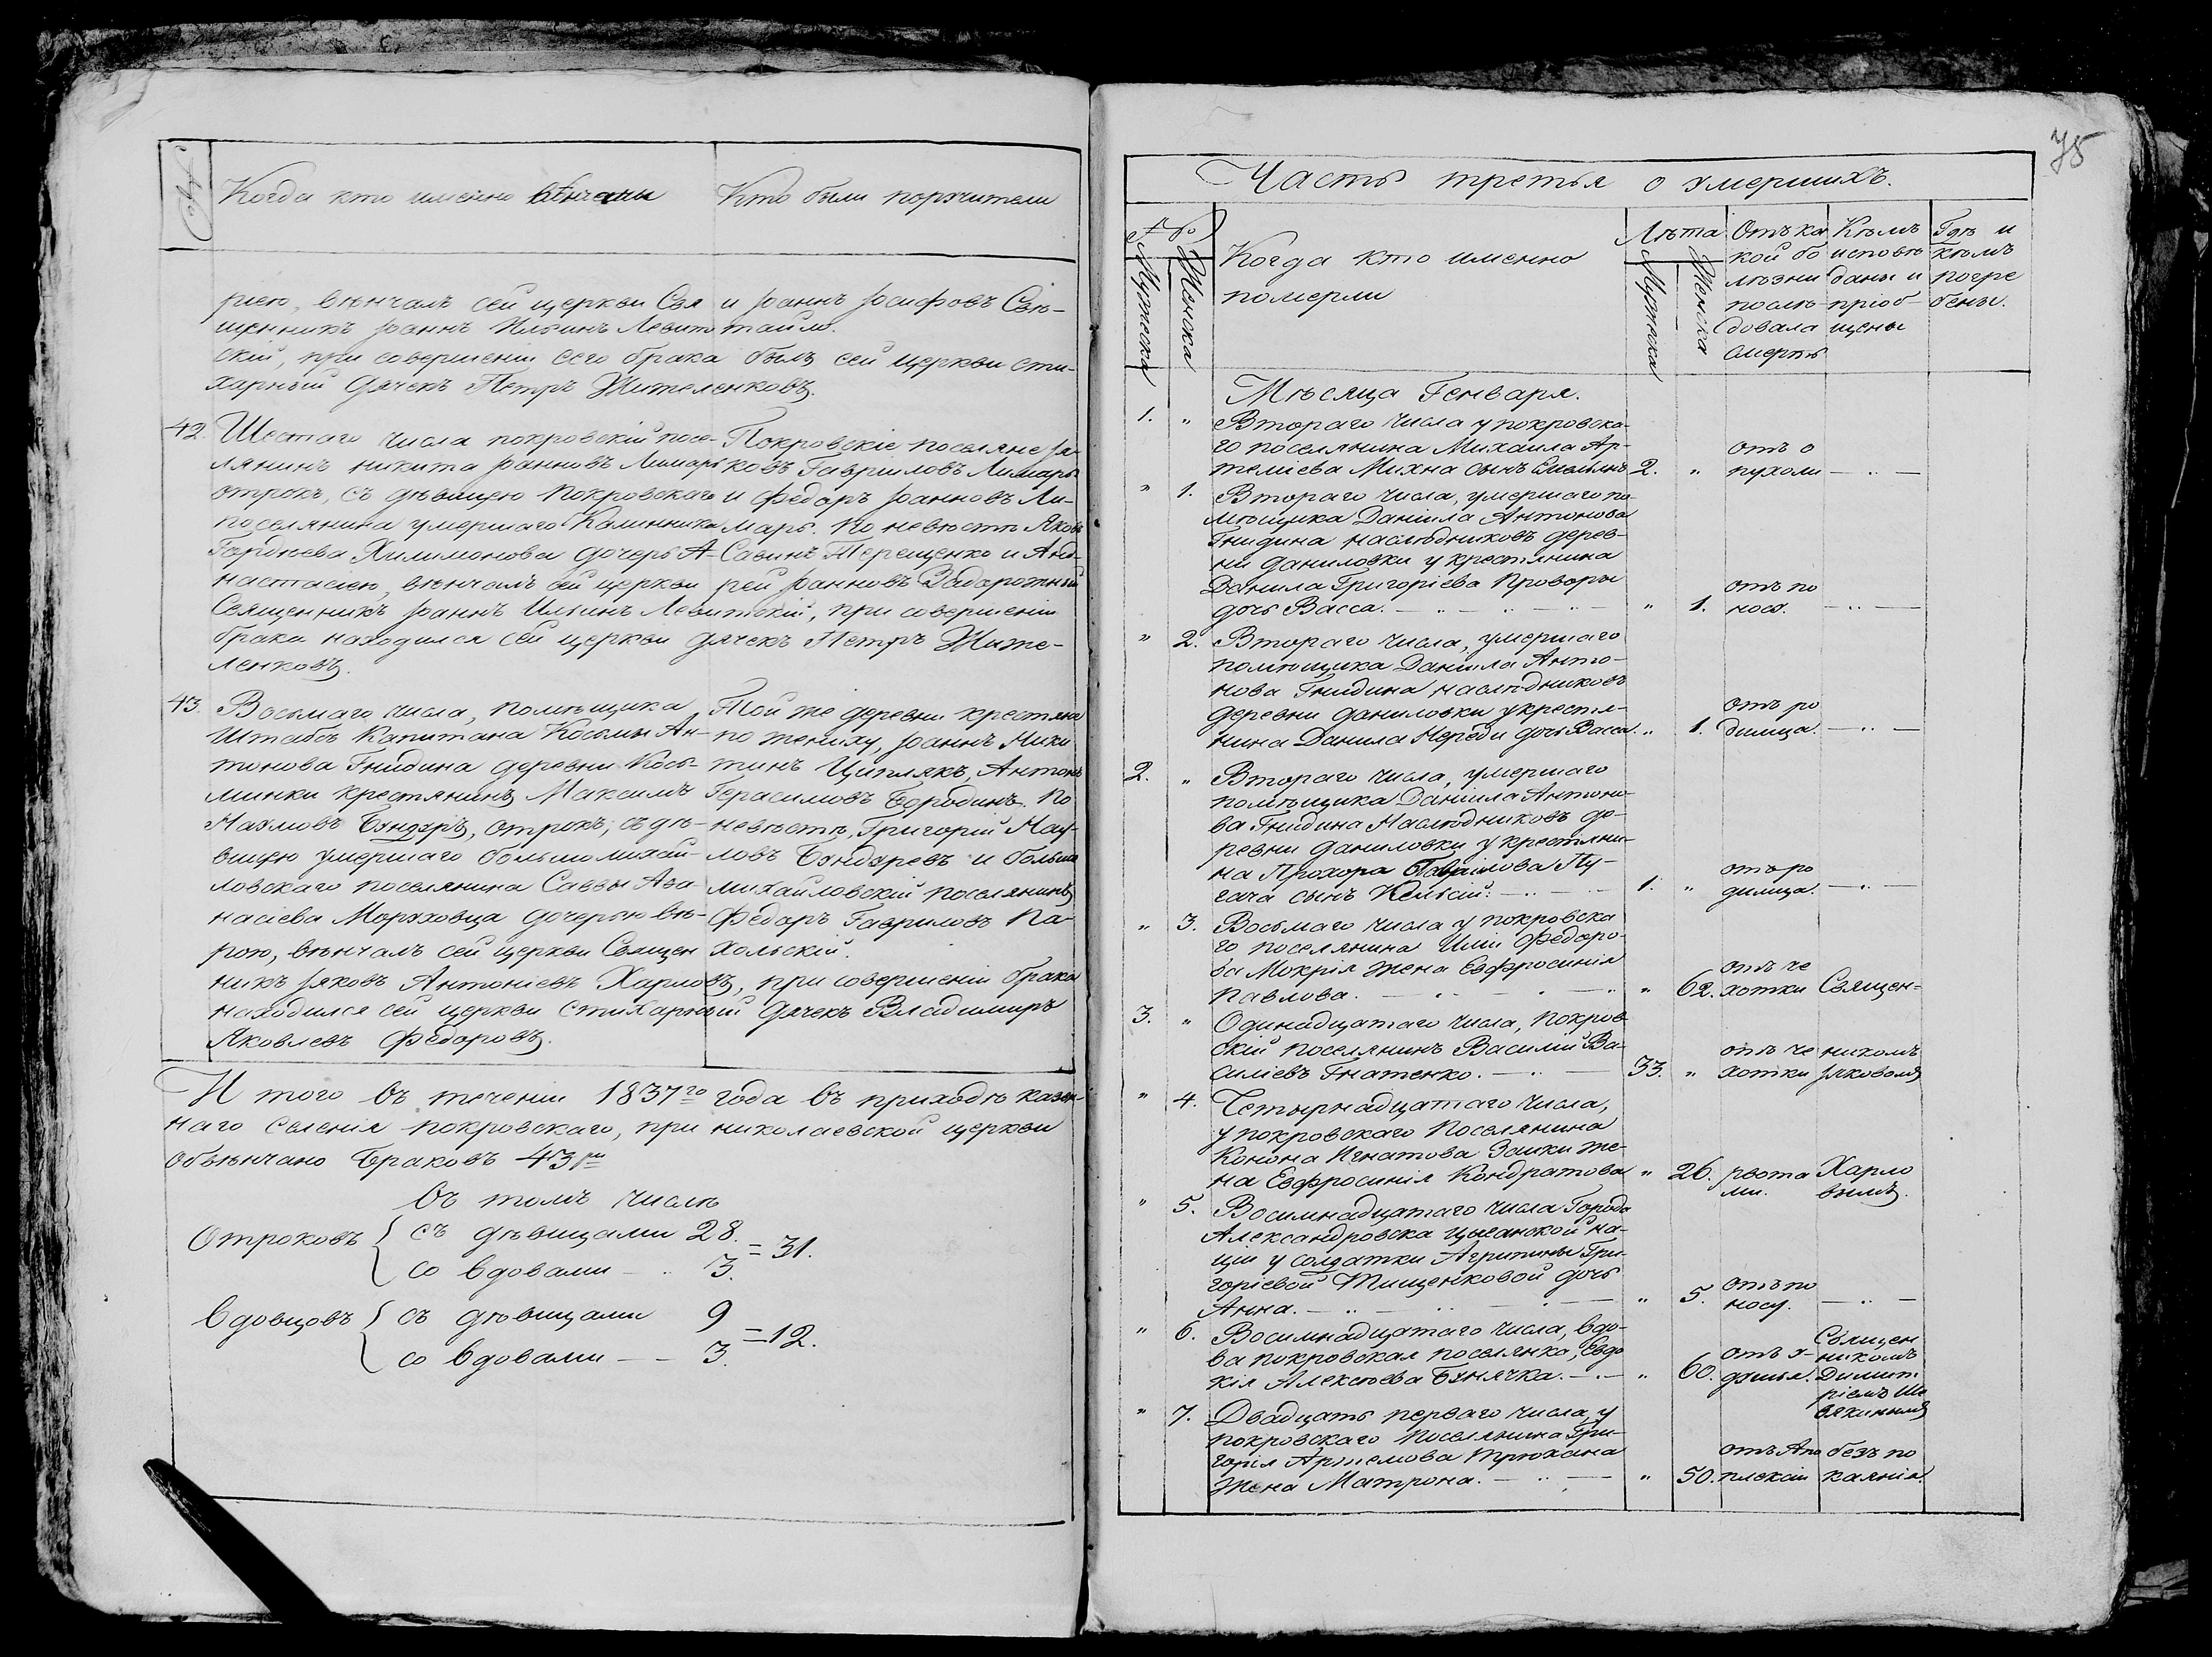 №
Когда кто именно венчаны
Кто были поручители
рiею, венчалъ сей церкви Свя
щенникъ Iоаннъ Ильинъ Левит
скiй, при совершенiи сего брака былъ сей церкви сти-
харный Дячекъ Петръ Жителенковъ.
и Iоаннъ Iосифовъ Свѣ-
тайло.
42.
Шестаго числа покровскiй посе-
лянинъ никита Iоанновъ Лимарь
отрокъ, съ дѣвицею покровскаго
поселянина умершаго Калинника
Гордѣева Хилимонова дочерь А-
настасiею, вѣнчалъ сей церкви
Священникъ Iоаннъ Ильинъ Левитскiй, при совершенiи
брака находился сей церкви дячекъ Петръ Жите-
ленковъ.
Покровскiе поселяне Iя
ковъ Гаврiиловъ Лимарь
и Федоръ Iоанновъ Ли-
марь. По невестѣ Яковъ
Савинъ Терещенко и Анд-
рей Iоанновъ Задорожный
43.
Восьмаго числа, помѣщика
Штабсъ Капитана Косьмы Ан-
тонова Гнидина деревни Кось-
минки крестянинъ Максимъ
Наумовъ Бундуръ, отрокъ, съ дѣ-
вицею умершаго большомихай-
ловскаго поселянина Саввы Ава-
насiева Моруховца дочерью Вѣ-
рою, вѣнчалъ сей церкви Священ
никъ Iяковъ Антонiевъ Харловъ, при совершенiи брака
находился сей церкви стихарный дячекъ Владимиръ
Яковлевъ Федоровъ.
Той же деревни крестяна
по жениху, Iоаннъ Ники
тинъ Циплякъ, Антонъ
Герасимовъ Бородинъ. По
невѣстѣ, Григорiй Нау-
мовъ Бундуревъ и больше
михайловскiй поселянинъ
Федоръ Гавриловъ Па-
хольскiй.
И того въ теченiи 1837го года въ приходѣ казен-
наго селенiя покровскаго, при николаевской церкви
обвѣнчано Браковъ 43ри
въ томъ числѣ
Отроковъ { съ дѣвицами 28.
со вдовами — 3. = 31.
вдовцовъ { съ дѣвицами 9
со вдовами — — 3. = 12.
75
Часть третья о умершихъ.
№
Мужеска
Женска
Когда кто именно
померли
Лѣта
Мужеска
Женска
Отъ ка
кой бо
лѣзни
послѣ-
довала
смерть
Кѣмъ
исповѣ
даны и
прiоб-
щены
Гдѣ и
кѣмъ
погре
бены.
Мѣсяца Генваря.
1. „ Втораго числа у покровска-
го поселянина Михаила Ар-
темiева Михна сынъ 2. „
отъ о
пухоли — „ —
„ 1. Втораго числа, умершаго по-
мѣщика Данiила Антонова
Гнидина наслѣдниковъ дерев-
ни даниловки у крестянина
Данила Григорiева Проворы
дочь Васса. — „ 1.
отъ по
носу. — „ —
„ 2. Втораго числа, умершаго
помѣщика Данiила Анто-
нова Гнидина наслѣдниковъ
деревни даниловки у крестя-
нина Данила Нереди дочь Васса. „ 1.
отъ ро
димца. — „ —
2. „ Втораго числа, умершаго
помѣщика Данiила Антоно-
ва Гнидина Наслѣдниковъ де-
ревни даниловки у крестяни-
на Прохора Гаврiилова Пу-
гача сынъ 1. „
отъ ро
димца. — „ —
„ 3. Восьмаго числа у покровска
го поселянина Илiи Федоро-
ва Мокрiя жена Евфросинiя
Павлова. — „ 62.
отъ че
хотки
Священ-
3. „ Одинадцатаго числа, покров
скiй поселянинъ Василiй Ва-
силiевъ Гнатенко. — 33. „
отъ че
хотки
никомъ
Iяковомъ
„ 4. Четырнадцатаго числа,
у покровскаго Поселянина
Конона Игнатова Заики же-
на Евфросинiя Кондратова „ 26.
рвота
ми.
Харло
вымъ.
„ 5. Восимнадцатаго числа Города
Александровска цыганской на-
цiи у солдатки Агрипины Гри-
горiевой Тищенковой дочь
Анна. — „ 5.
отъ по
носу. — „ —
„ 6. Восимнадцатаго числа, вдо-
ва покровская поселянка, Евдо
кiя Алексѣева Бунячка. — „ 60.
отъ у-
душья.
Священ
никомъ
Димит
рiемъ Ше
вякинымъ
„ 7. Двадцать перваго числа, у
покровскаго поселянина Гри-
горiя Артемова Трюхана
жена Матрона. — „ 50.
отъ Апо
плексiи
безъ по
каянiя.